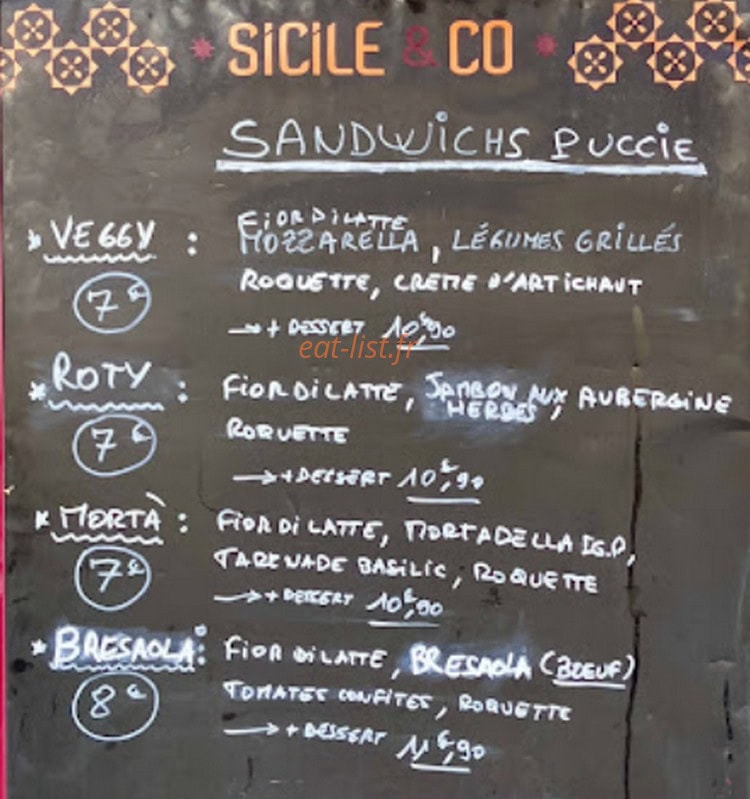 SICILE & CO
SANDWICHS PUCCIE
* VEGGY : FIOR DI LATTE
MOZZARELLA, LÉGUMES GRILLÉS
7€ ROQUETTE, CREME D'ARTICHAUT
→ + DESSERT 10€,90
eat-list.fr
* ROTY : FIOR DI LATTE, JAMBON AUX HERBES, AUBERGINE
7€ ROQUETTE
→ + DESSERT 10€,90
* MORTÀ : FIOR DI LATTE, MORTADELLA IGP,
7€ TAPENADE BASILIC, ROQUETTE
→ + DESSERT 10€,90
* BRESAOLA : FIOR DI LATTE, BRESAOLA (BOEUF)
8€ TOMATES CONFITES, ROQUETTE
→ + DESSERT 11€,90